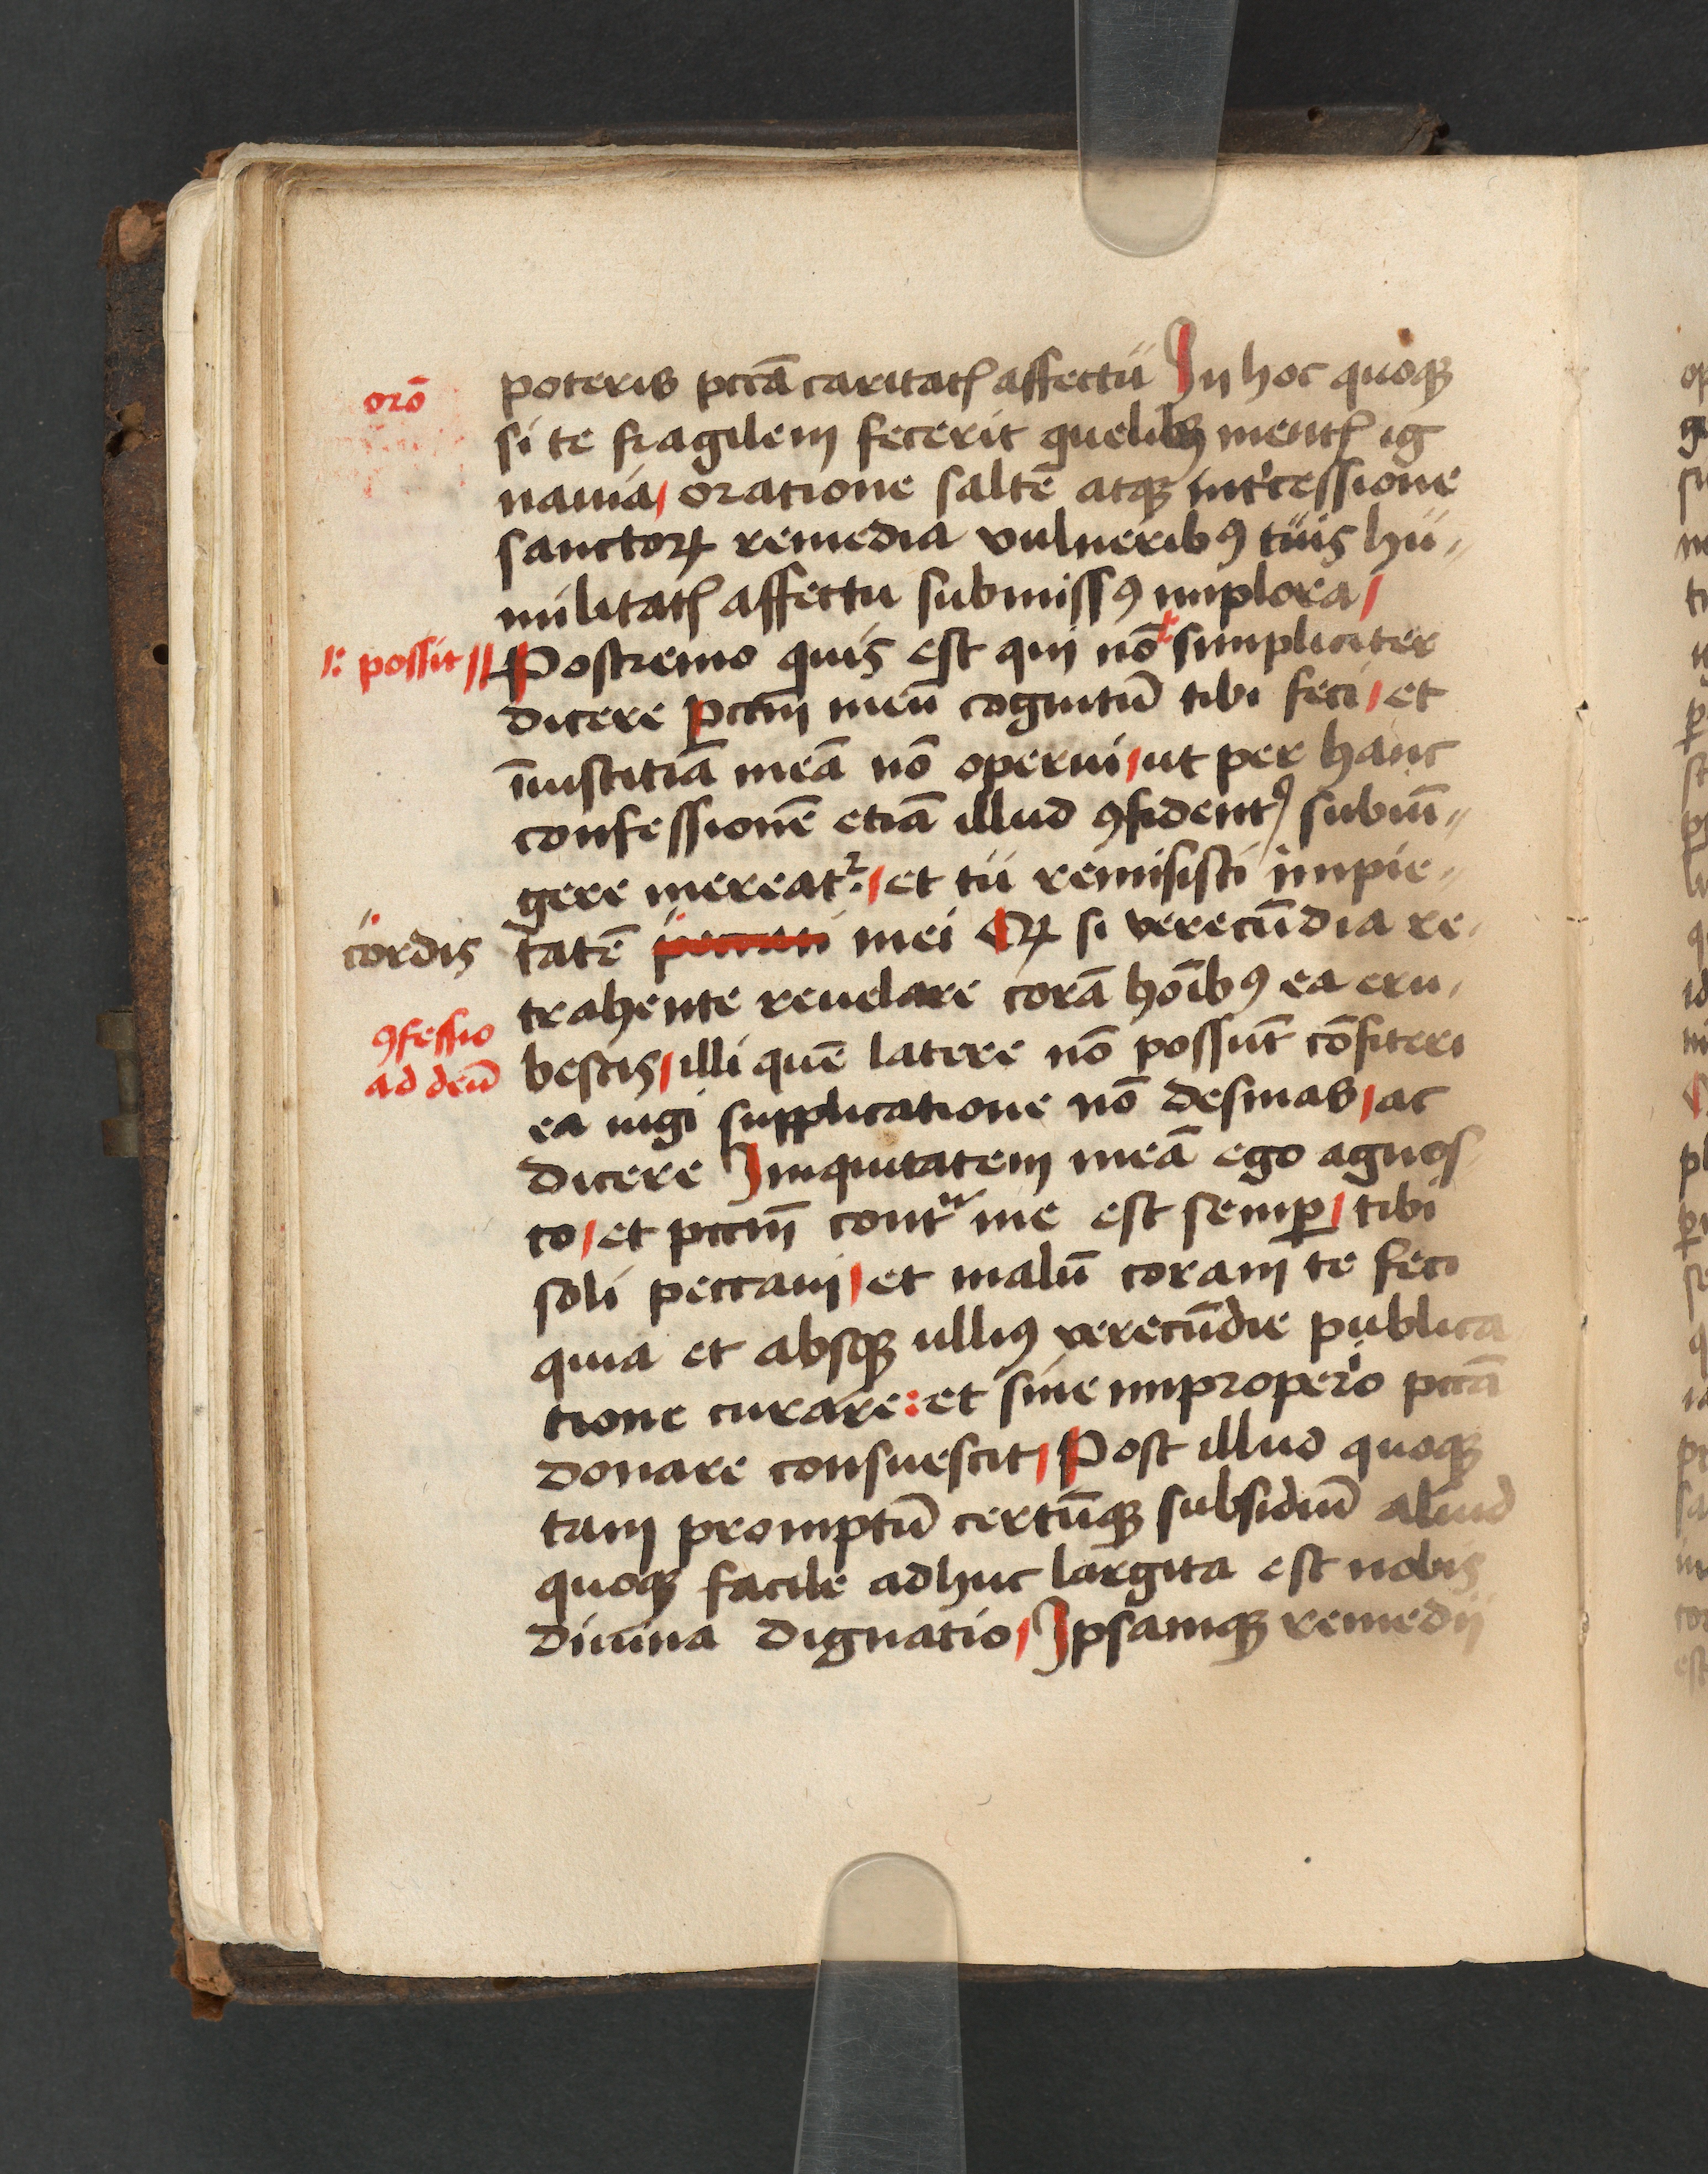 orō
poteris pctā caritatꝭ affectu In hoc quoqꝫ
si te fragilem fecerit quelibꝫ mentꝭ ig
nauia / oratione saltē atqꝫ int'cessione
sanctoꝝ remedia vulneribꝰ tuis hu-
militatꝭ affectu submissꝰ implora /
l: possit //
Postremo quis est qui nō simpliciter
dicere pctm̄ meū cognitū tibi feci / et
īiustitiā meā nō operui / ut per hanc
confessionē etiā illud ꝯfidentꝰ subiū-
gere mereatᷣ / et tu remisisti impie-
cordis
tatē peccati mei Qꝝ si verecūdia re-
trahente reuelare corā hoībꝰ ea eru-
ꝯfessio
ad deū
bescis / illi quē latere nō possūt cōfiteri
ea iugi supplicatione nō desinas / ac
dicere Iniquitatem meā ego agnos
co / et pctm̄ contᵃ me est semꝑ / tibi
soli peccaui / et malū coram te feci
quia et absqꝫ ulliꝰ verecūdie publica
tione curare : et sine improperio pctā
donare consuescit / Post illud quoqꝫ
tam promptū certūqꝫ subsidiū aliud
quoqꝫ facile adhuc largita est nobis
diuina dignatio / Ipsamqꝫ remedij